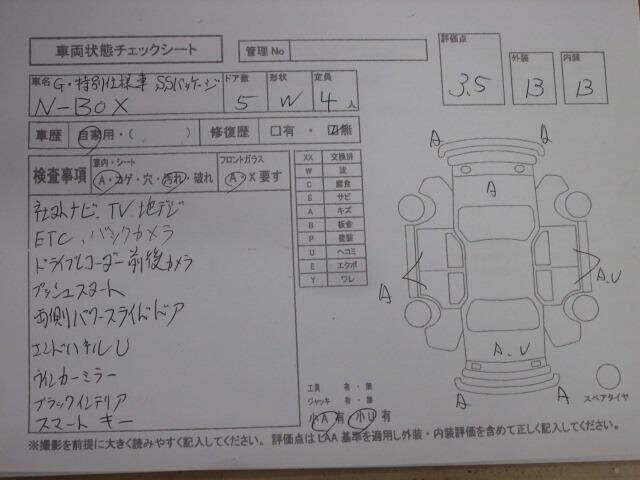 車両状態チェックシート
管理No
評価点 3.5
外装 B
内装 B
車名 G・特別仕様車 SSパッケージ
N-BOX
ドア数 5
形状 W
定員 4人
車歴 自家用・( )
修復歴 口有・☑無
検査事項
室内・シート
A・コゲ・穴・汚れ・破れ
フロントガラス
A・X要す
XX 交換済
W 波
C 腐食
S サビ
A キズ
B 板金
P 塗装
U ヘコミ
E エクボ
Y ワレ
社外ナビ TV 地デジ
ETC、バックカメラ
ドライブレコーダー前後カメラ
プッシュスタート
両側パワースライドドア
エンドパネルU
ウインカーミラー
ブラックインテリア
スマートキー
A A
A
A A.U
A.U
A A
工具 有・無
ジャッキ 有・無
小A有 小U有
スペアタイヤ
※撮影を前提に大きく読みやすく記入してください。評価点はLAA基準を適用し外装・内装評価を含めて正しく記入してください。